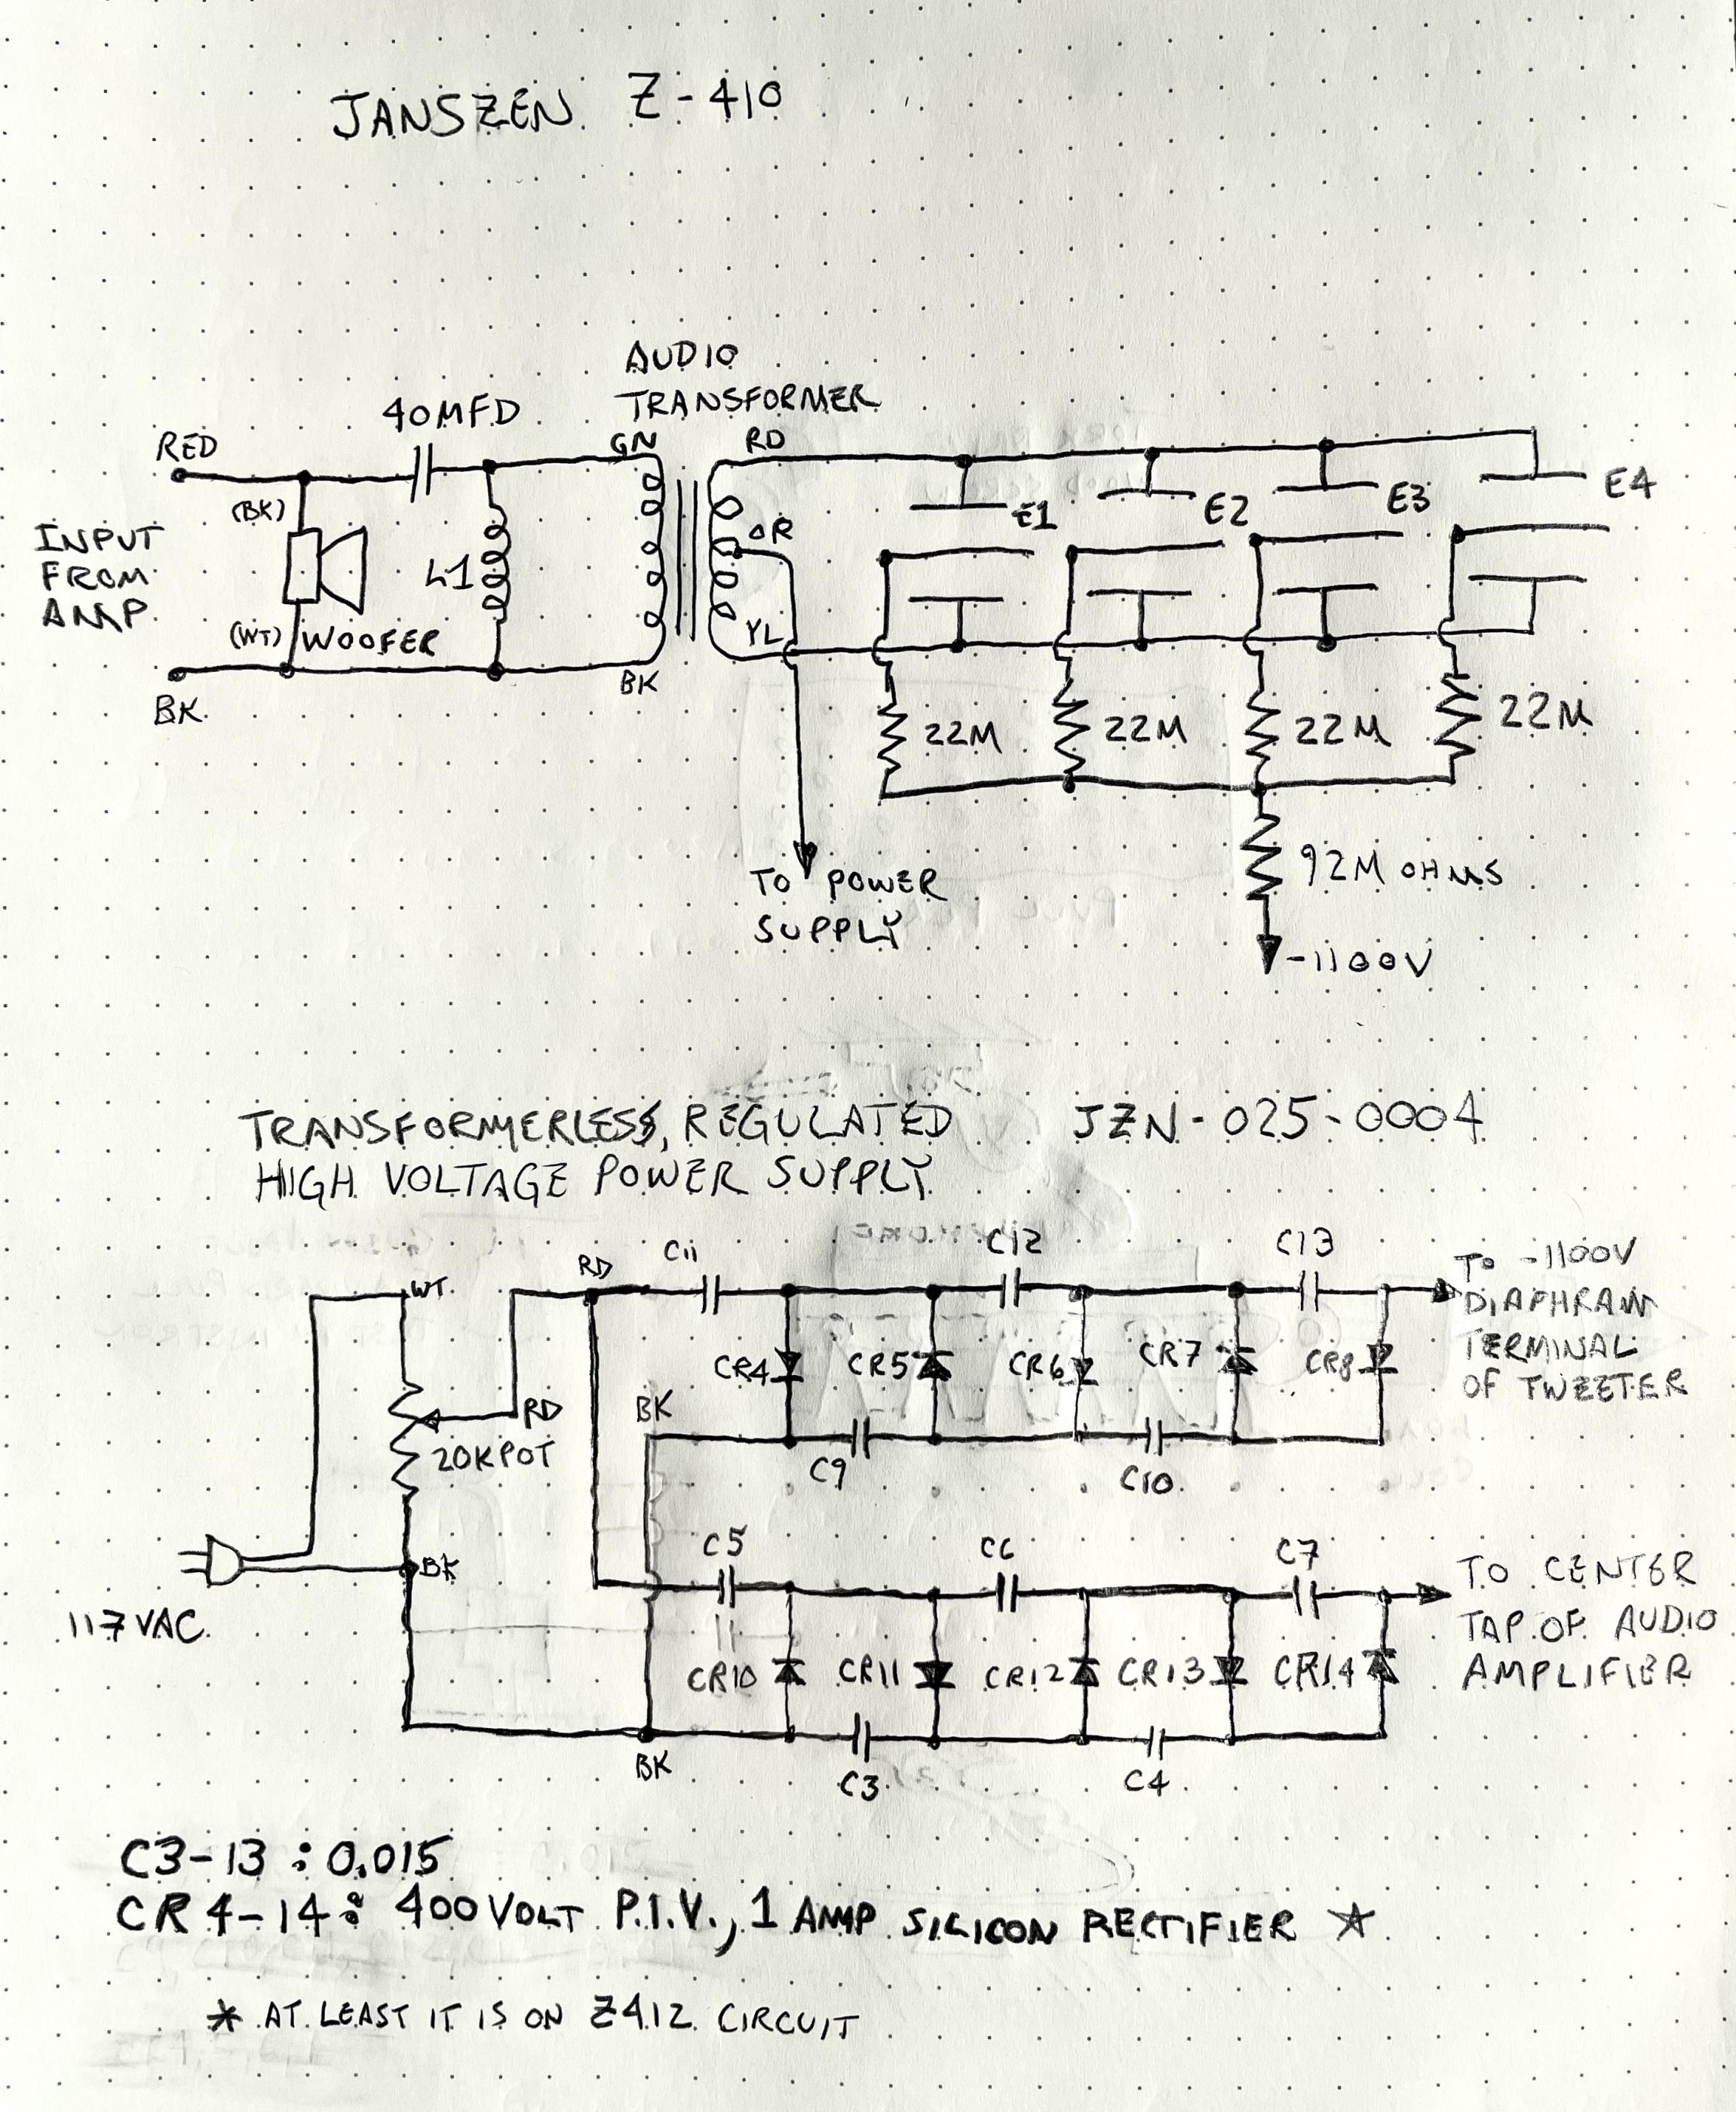 JANSZEN Z-410
AUDIO
TRANSFORMER
40MFD
RED
GN
RD
(BK)
INPUT
FROM
AMP
L1
OR
E1
E2
E3
E4
(WT) WOOFER
YL
BK
BK
22M
22M
22M
22M
TO POWER
SUPPLY
92M OHMS
-1100V
TRANSFORMERLESS, REGULATED
HIGH VOLTAGE POWER SUPPLY
JZN-025-0004
WT
RD
C11
C12
C13
TO -1100V
DIAPHRAM
TERMINAL
OF TWEETER
CR4
CR5
CR6
CR7
CR8
RD
20K POT
BK
C9
C10
BK
117 VAC
C5
C6
C7
TO CENTER
TAP OF AUDIO
AMPLIFIER
CR10
CR11
CR12
CR13
CR14
BK
C3
C4
C3-13 : 0.015
CR4-14: 400 VOLT P.I.V., 1 AMP SILICON RECTIFIER ☆
* AT LEAST IT IS ON Z412 CIRCUIT